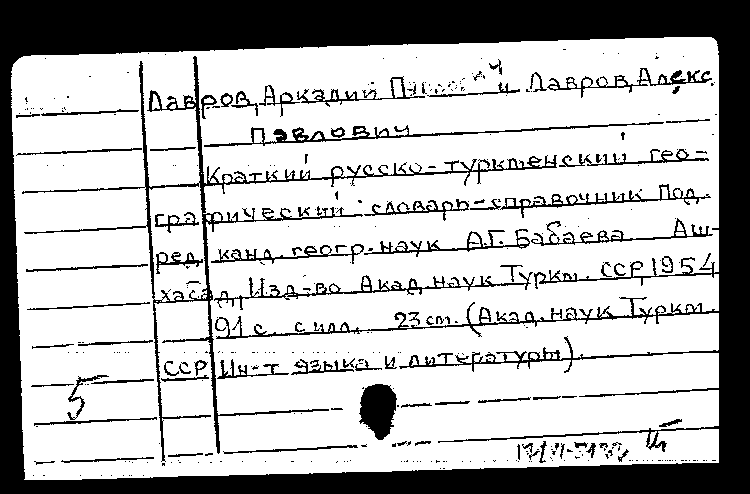 Лавров, Аркадий Павлович и Лавров, Алекс.
Павлович
Краткий русско-туркменский гео-
графический словарь-справочник Под.
ред. канд. геогр. наук А.Г. Бабаева Аш-
хабад, Изд-во Акад. наук Туркм. ССР, 1954
91 с. с илл. 23 см. (Акад. наук Туркм.
ССР Ин-т языка и литературы).
5